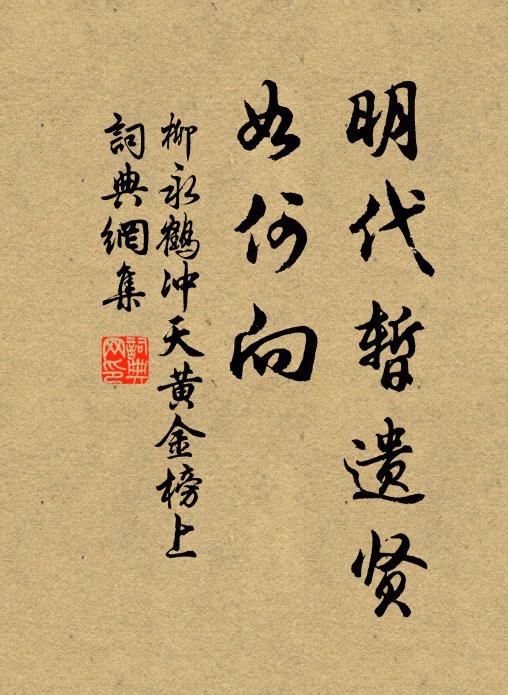 明代暂遗贤
如何向
柳永鹤冲天黄金榜上
詞典網集
詞典网印